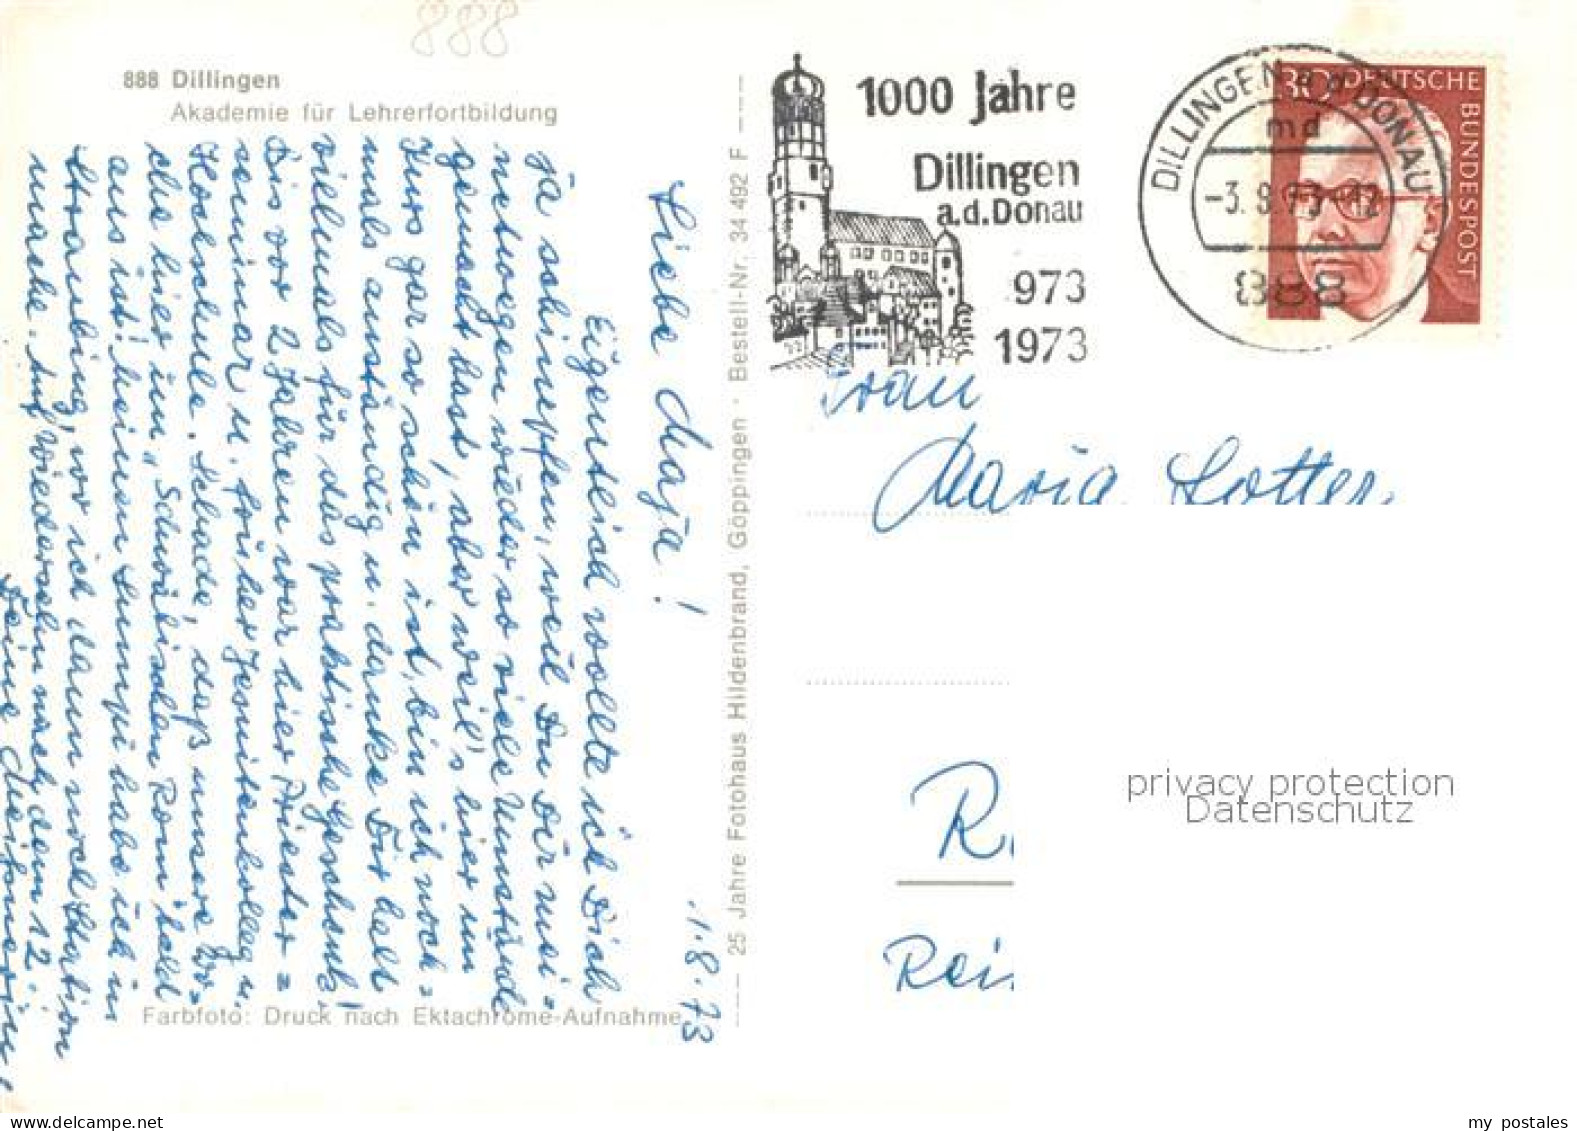 888
888 Dillingen
Akademie für Lehrerfortbildung
1.8.73
Liebe Maja!
Eigentlich wollte ich Dich
ja schimpfen, weil Du Dir mei=
netwegen wieder so viele Umstände
gemacht hast, aber weil's hier im
Kurs gar so schön ist, bin ich noch=
mals anständig u. danke Dir halt
vielmals für das praktische Geschenk!
Bis vor 2 Jahren war hier Priester=
seminar u. früher Jesuitenkolleg u.
Hochschule. Schade, daß unsere Wo=
che hier im "Schwäbischen Rom" bald
aus ist! Meinen Lumpi habe ich in
Straubing, wo ich dann noch Station
mache. Auf Wiedersehn nach dem 12.
Deine
Farbfoto: Druck nach Ektachrome-Aufnahme
25 Jahre Fotohaus Hildenbrand, Göppingen · Bestell-Nr. 34 492 F
1000 Jahre
Dillingen
a.d.Donau
973
1973
DILLINGEN a d DONAU
md
-3.8.73-12
888
30 DEUTSCHE
BUNDESPOST
Frau
Maria Lotter
R
Rei
privacy protection
Datenschutz
www.delcampe.net
my postales